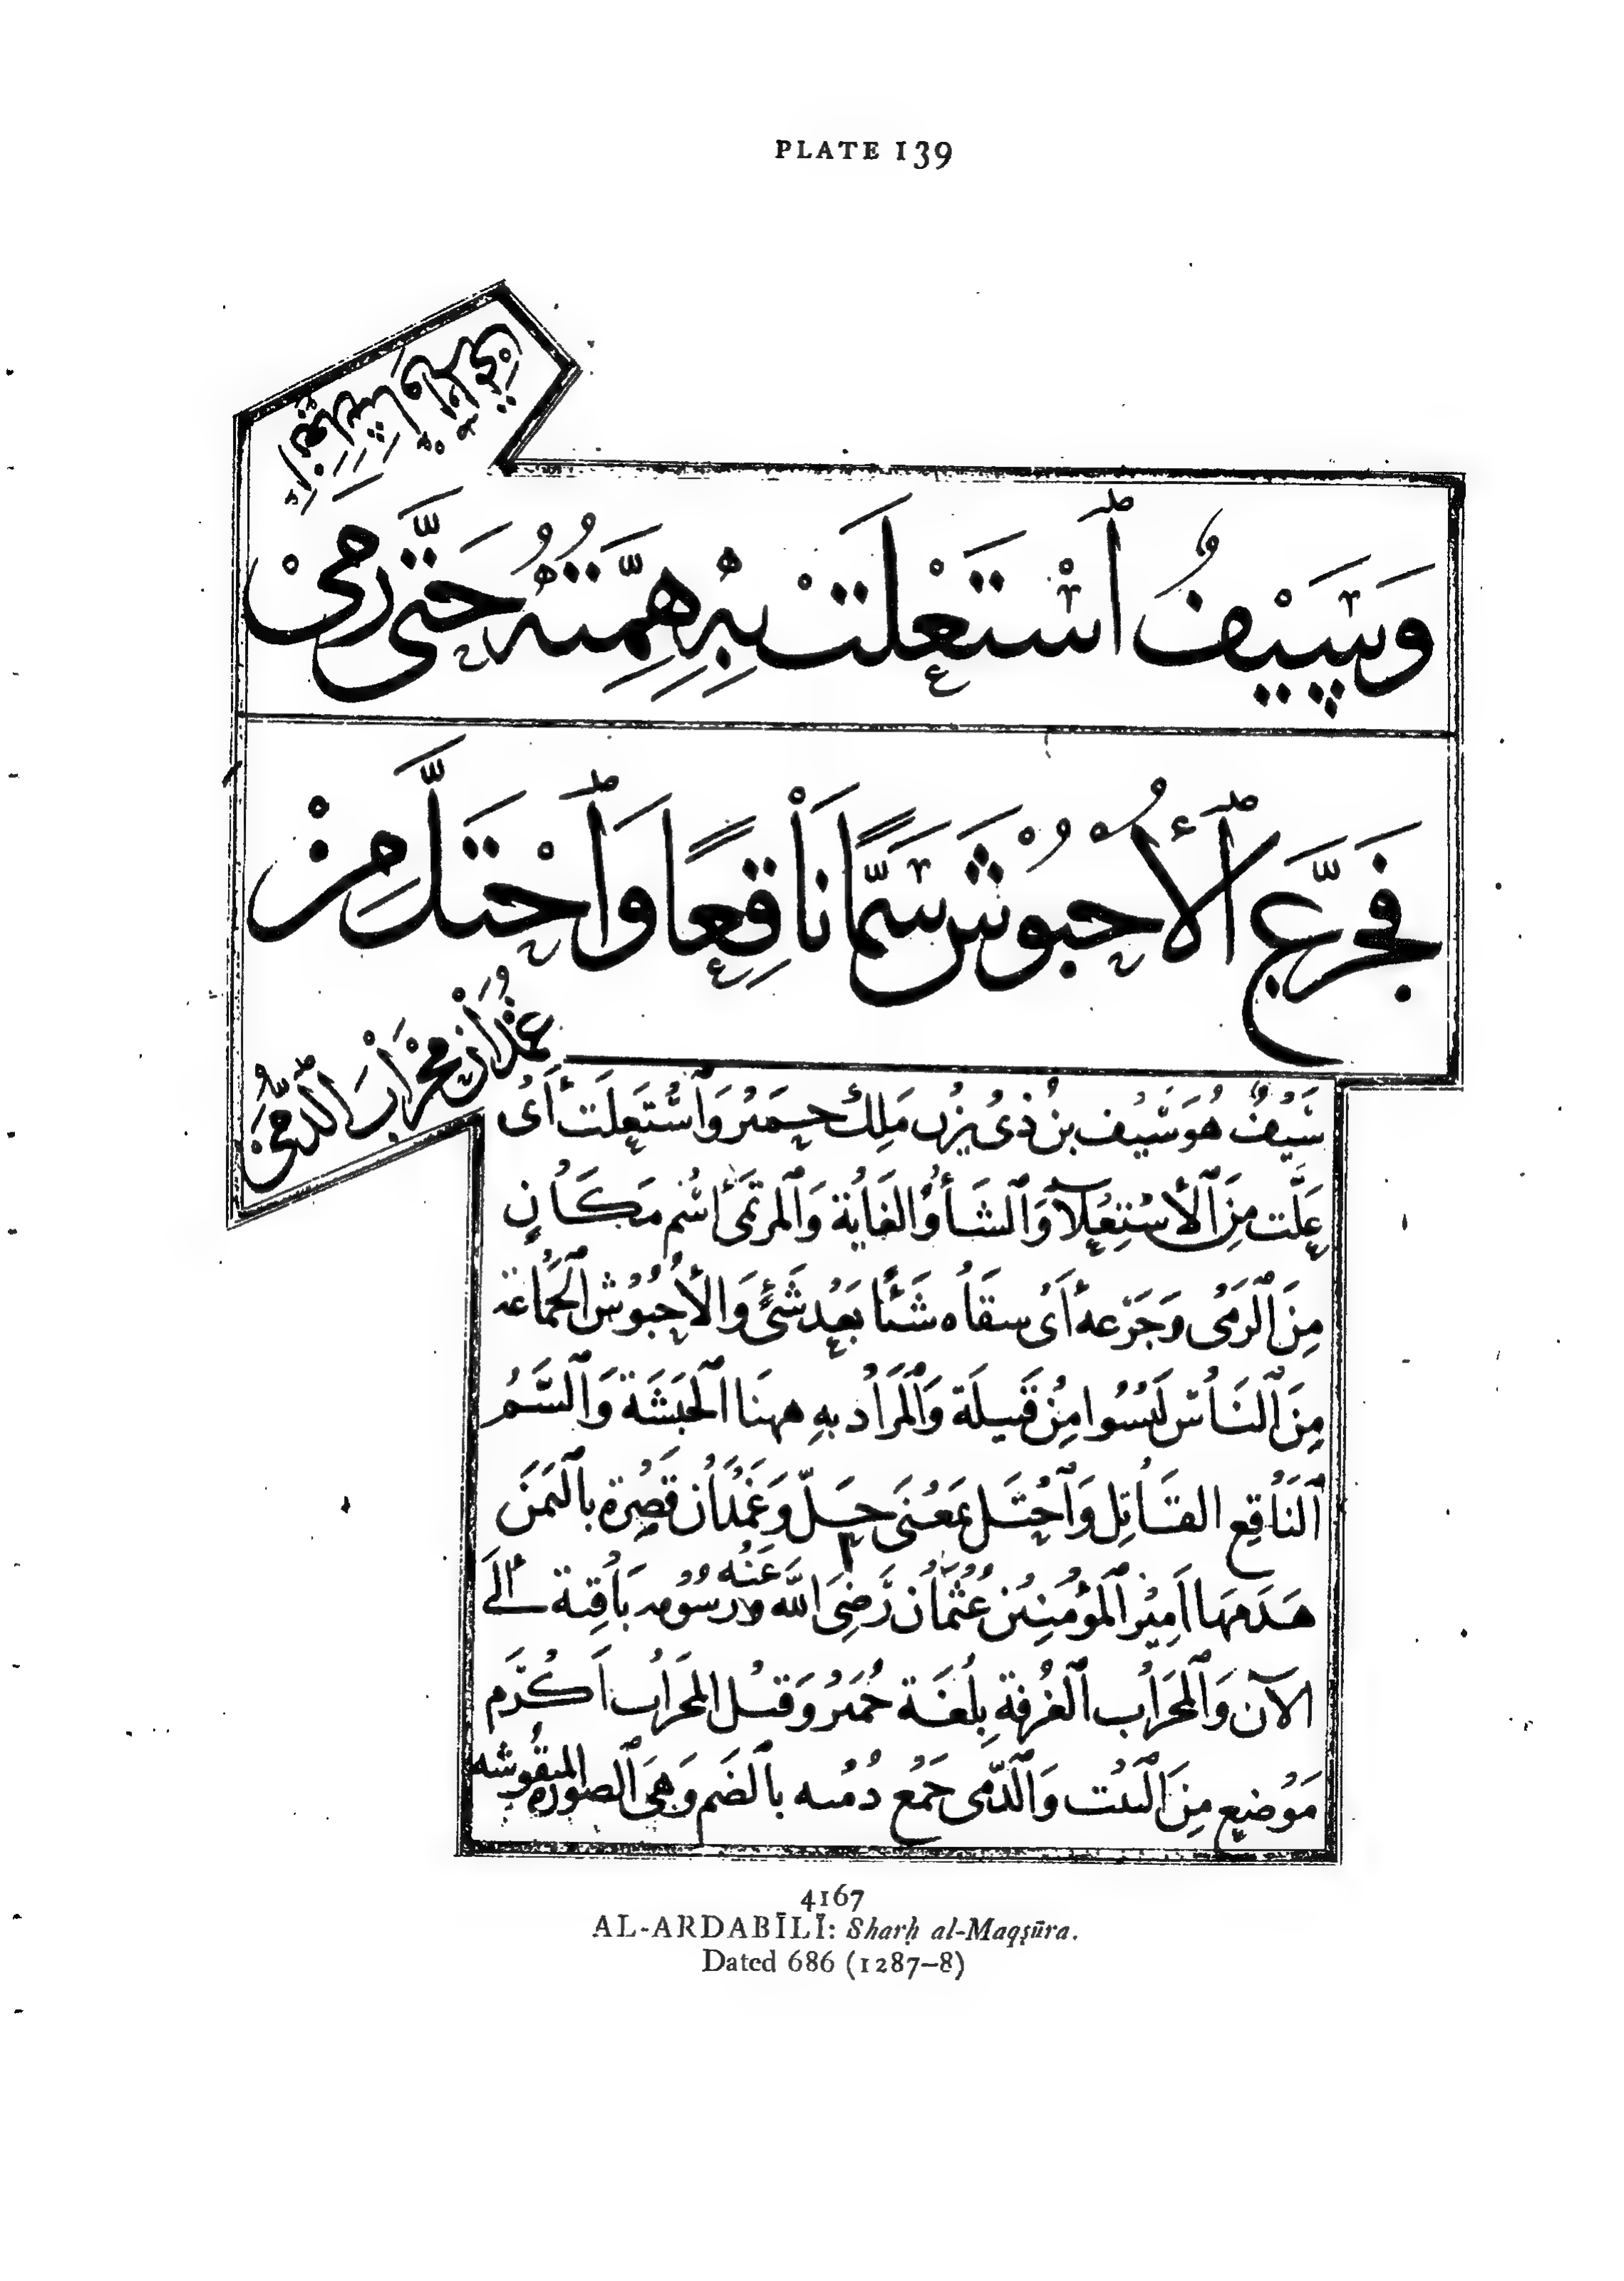 PLATE 139
وَسَيْفُ ٱسْتَعْلَتْ بِهِ هِمَّتُهُ حَتَّى رَمَىْ
أَبْعَدَ شَأْوِ الْمُرْتَمَى
فَجَرَّعَ ٱلْأُحْبُوْشَ سَمًّا نَاْقِعًا وَٱحْتَلَّ مِنْ
غُمْدَاْنَ مِحْرَاْبَ الدُّمَىْ
سَيْفُ هُوَ سَيْف بنْ ذِىْ يزن مَلِك حِمْيَر وَٱسْتَعلَت أَىْ
عَلَت مِنَ ٱلْأسْتِعْلآ وَٱلشَأْوُ الغَايَة وَالمرتَمَى أسْم مَكَانٍ
مِنَ ٱلرَمْى وَجَرّعه أَىْ سقَاْه شَئًا بَعْد شَئٍ وَالْأُحْبُوْش الجَمَاْعَة
مِنَ ٱلنَاْس لَيْسُوا مِنْ قَبيلَة وَٱلْمُرَاْد بهِ ههنَا الْحَبَشَة وَالسَّمُ
ٱلنَاْقِع القَاْتِل وَٱحْتَل بمَعْنَى حَلّ وَغُمْدَاْن قَصْرة بِاليَمَن
هَدَمَهَا اَمِيْر ٱلْمُؤْمِنِيْن عُثْمَاْن رَضِىَ اللّه عَنْه ورسُوْمه بَاْقِية إلَى
الآن وَٱلمحَرَاْب ٱلغُرفة بِلُغَة حِمْيَر وَقيْل المحَرَاْب اَكْرَم
مَوْضع مِنَ ٱلبَيْت وَٱلدّمى جَمْع دُمْيه بالضَم وَهىَ ٱلصُورة المنقُوشه
4167
AL-ARDABĪLĪ: Sharḥ al-Maqṣūra.
Dated 686 (1287–8)